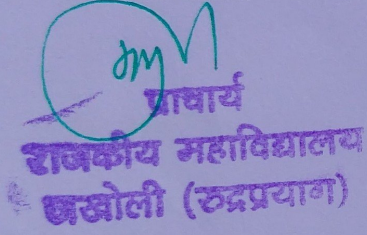 प्राचार्य
राजकीय महाविद्यालय
जखोली (रुद्रप्रयाग)